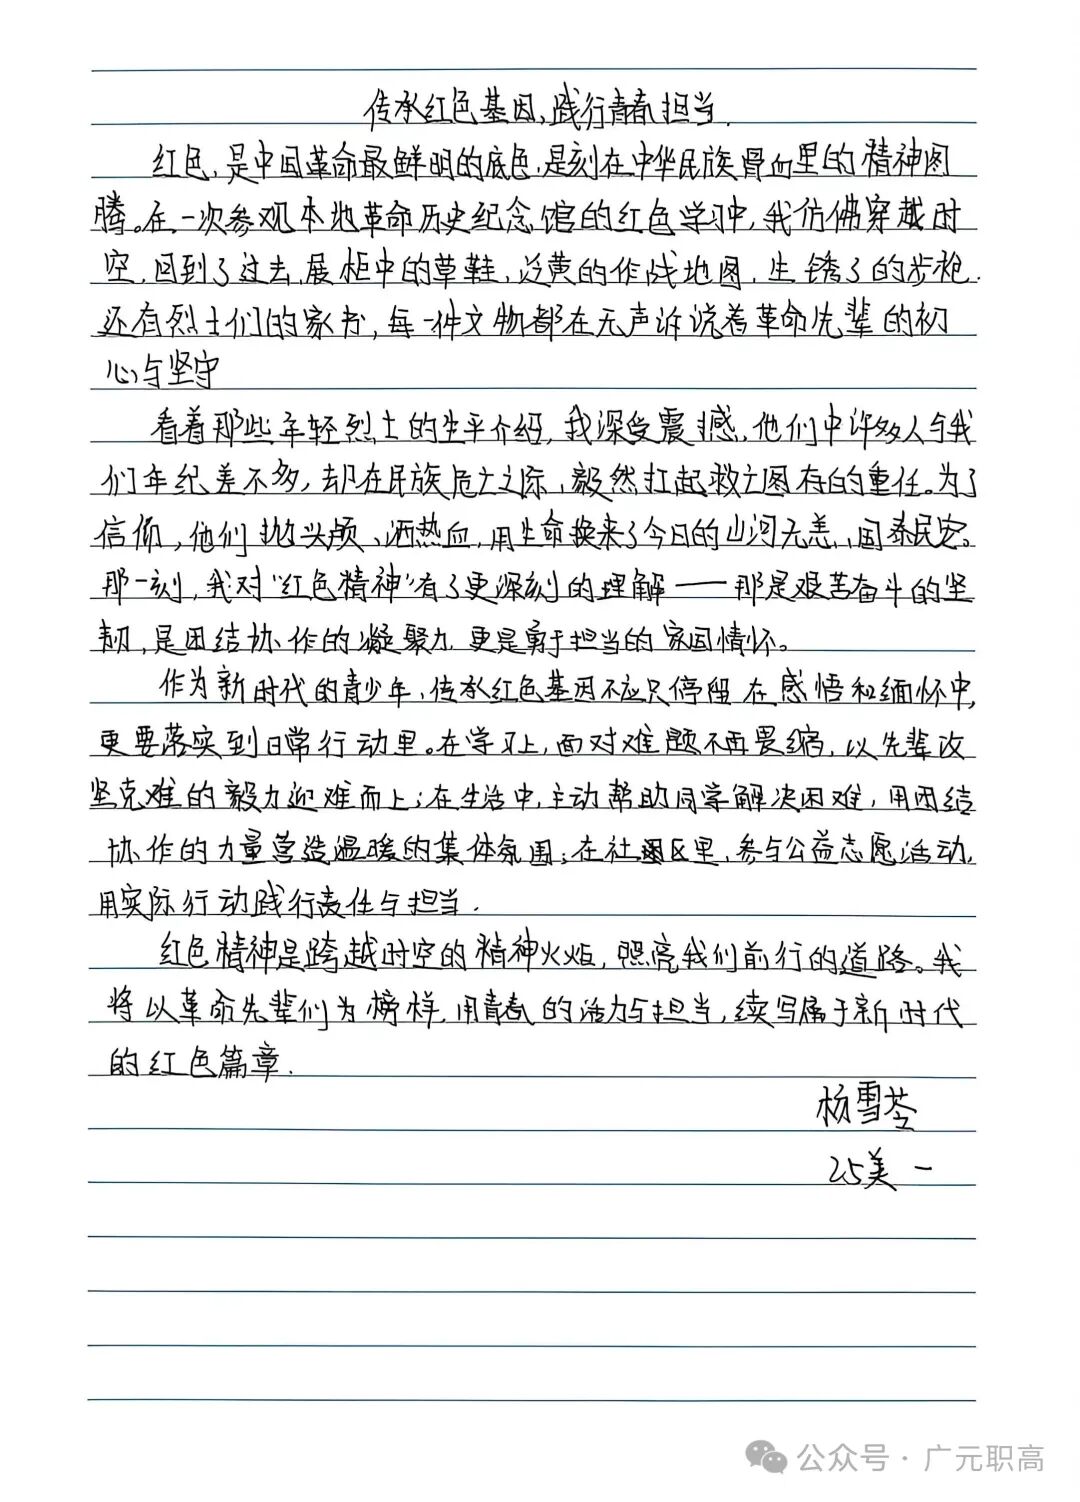 传承红色基因,践行青春担当.
红色,是中国革命最鲜明的底色,是刻在中华民族骨血里的精神图
腾。在一次参观本地革命历史纪念馆的红色学习中,我仿佛穿越时
空,回到了过去,展柜中的草鞋,泛黄的作战地图,生锈了的步枪.
还有烈士们的家书,每一件文物都在无声诉说着革命先辈的初
心与坚守
看着那些年轻烈士的生平介绍,我深受震撼,他们中许多人与我
们年纪差不多,却在民族危亡之际,毅然扛起救亡图存的重任。为了
信仰,他们抛头颅、洒热血,用生命换来了今日的山河无恙,国泰民安。
那一刻,我对“红色精神”有了更深刻的理解——那是艰苦奋斗的坚
韧,是团结协作的凝聚力,更是勇于担当的家国情怀。
作为新时代的青少年,传承红色基因不应只停留在感悟和缅怀中,
更要落实到日常行动里。在学习上,面对难题不再畏缩,以先辈攻
坚克难的毅力迎难而上;在生活中,主动帮助同学解决困难,用团结
协作的力量营造温暖的集体氛围;在社区里,参与公益志愿活动,
用实际行动践行责任与担当.
红色精神是跨越时空的精神火炬,照亮我们前行的道路。我
将以革命先辈们为榜样,用青春的活力与担当,续写属于新时代
的红色篇章.
杨雪苓
25美一
公众号·广元职高